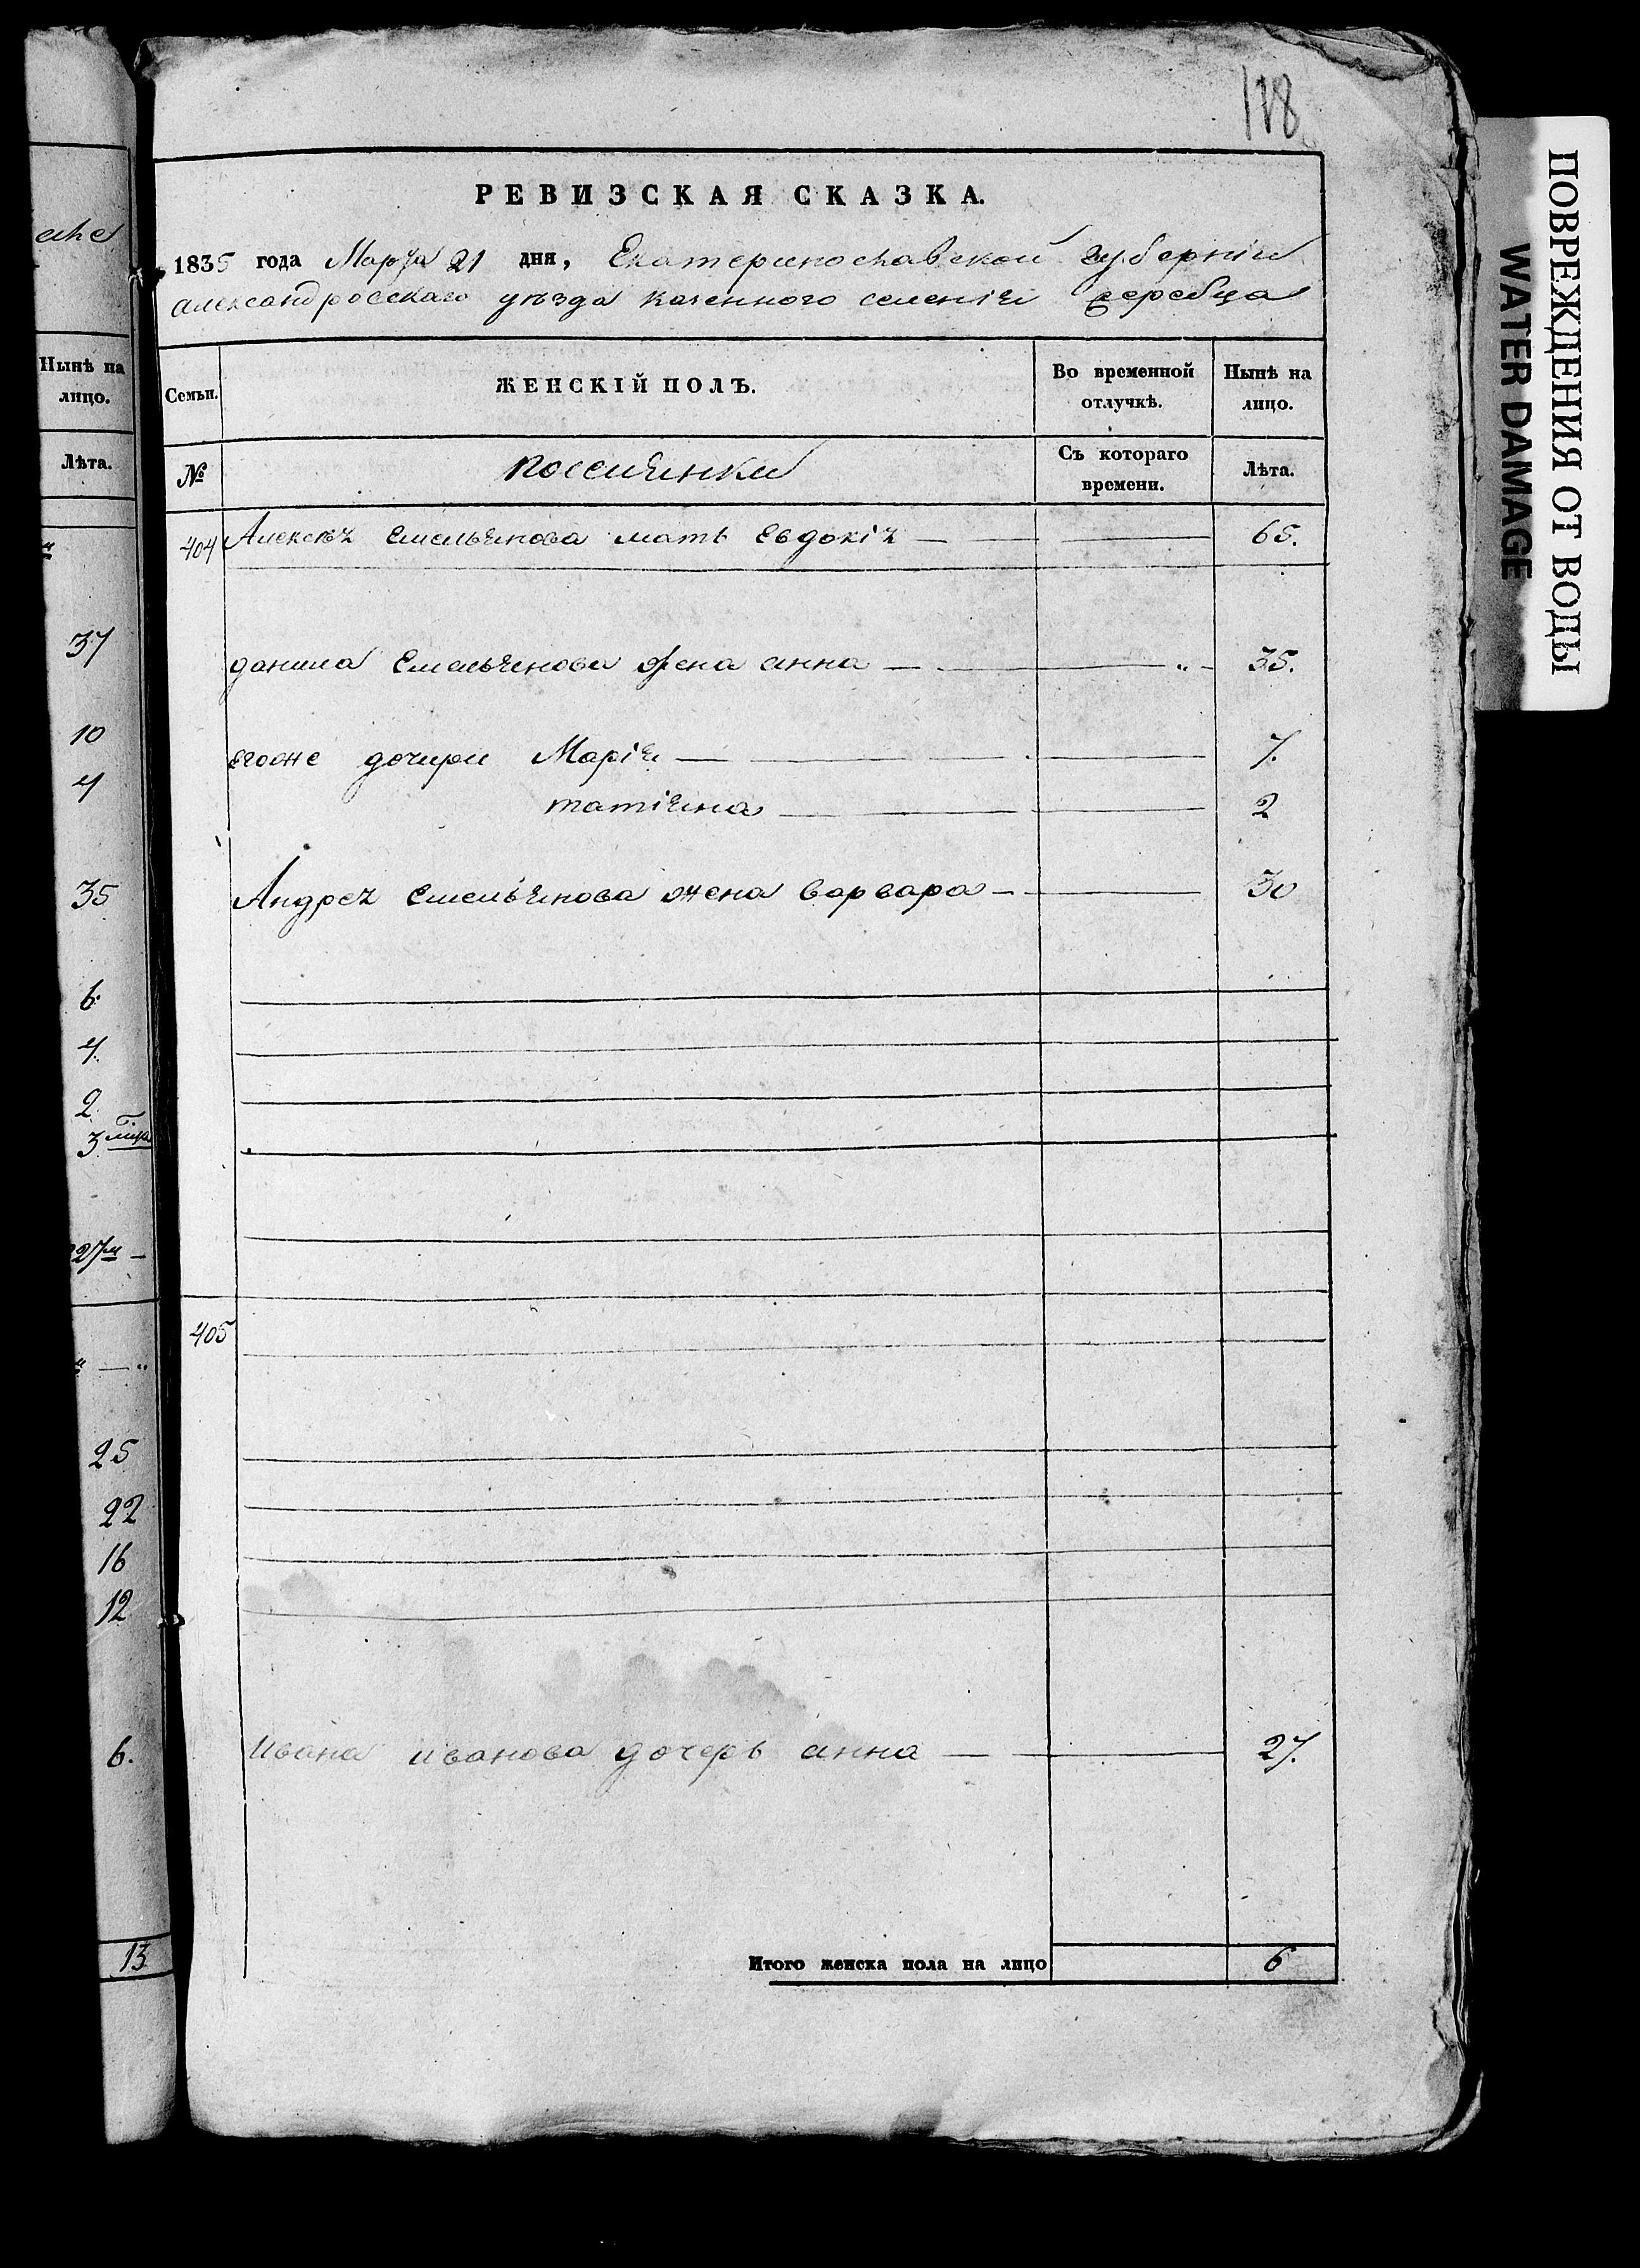 118
РЕВИЗСКАЯ СКАЗКА.
1835 года Марта 21 дня, Екатеринославской губерніи
александровскаго уѣзда казенного селенія жеребца
Семьи.
ЖЕНСКІЙ ПОЛЪ.
Во временной отлучкѣ.
Нынѣ на лицо.
№
россиянки
Съ котораго времени.
Лѣта.
404 Алексѣя Емельянова мать Евдокія — 65.
данила Емельянова жена анна — 35.
егоже дочери Марія — 7.
татіяна — 2
Андрея Емельянова жена варвара — 30
405
Ивана иванова дочерь анна — 27.
Итого женска пола на лицо 6
Нынѣ на лицо.
Лѣта.
37
10
4
35
6
4.
2
3
27
25
22
16
12
6.
13
ПОВРЕЖДЕНИЯ ОТ ВОДЫ
WATER DAMAGE